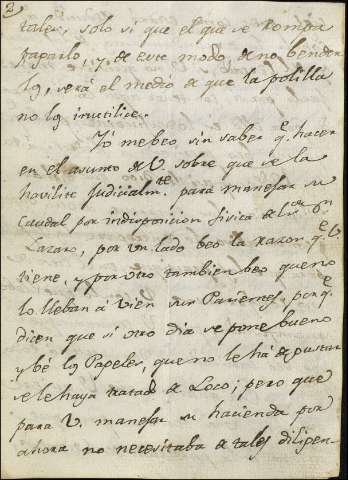 2
tales, solo si que el que se rompa
taparlo, y de este modo, de no bender
los, será el medio de que la polilla
no los inutilice.
Yo me beo, sin saber qe. hacer
en el asunto de V. sobre que se la
havilite Judicialmte. para manejar su
Caudal por indisposicion fisica del
Lazaro, por un lado beo la razon qe. V
tiene, y por otro tambien beo que no
lo lleban á vien sus Parientes, porqe.
dicen que si otro dia se pone bueno
y bé los Papeles, que no le há de gustar
se le haya tratado de Loco; pero que
para V. manejar su hacienda por
ahora no necesitaba de tales diligen-